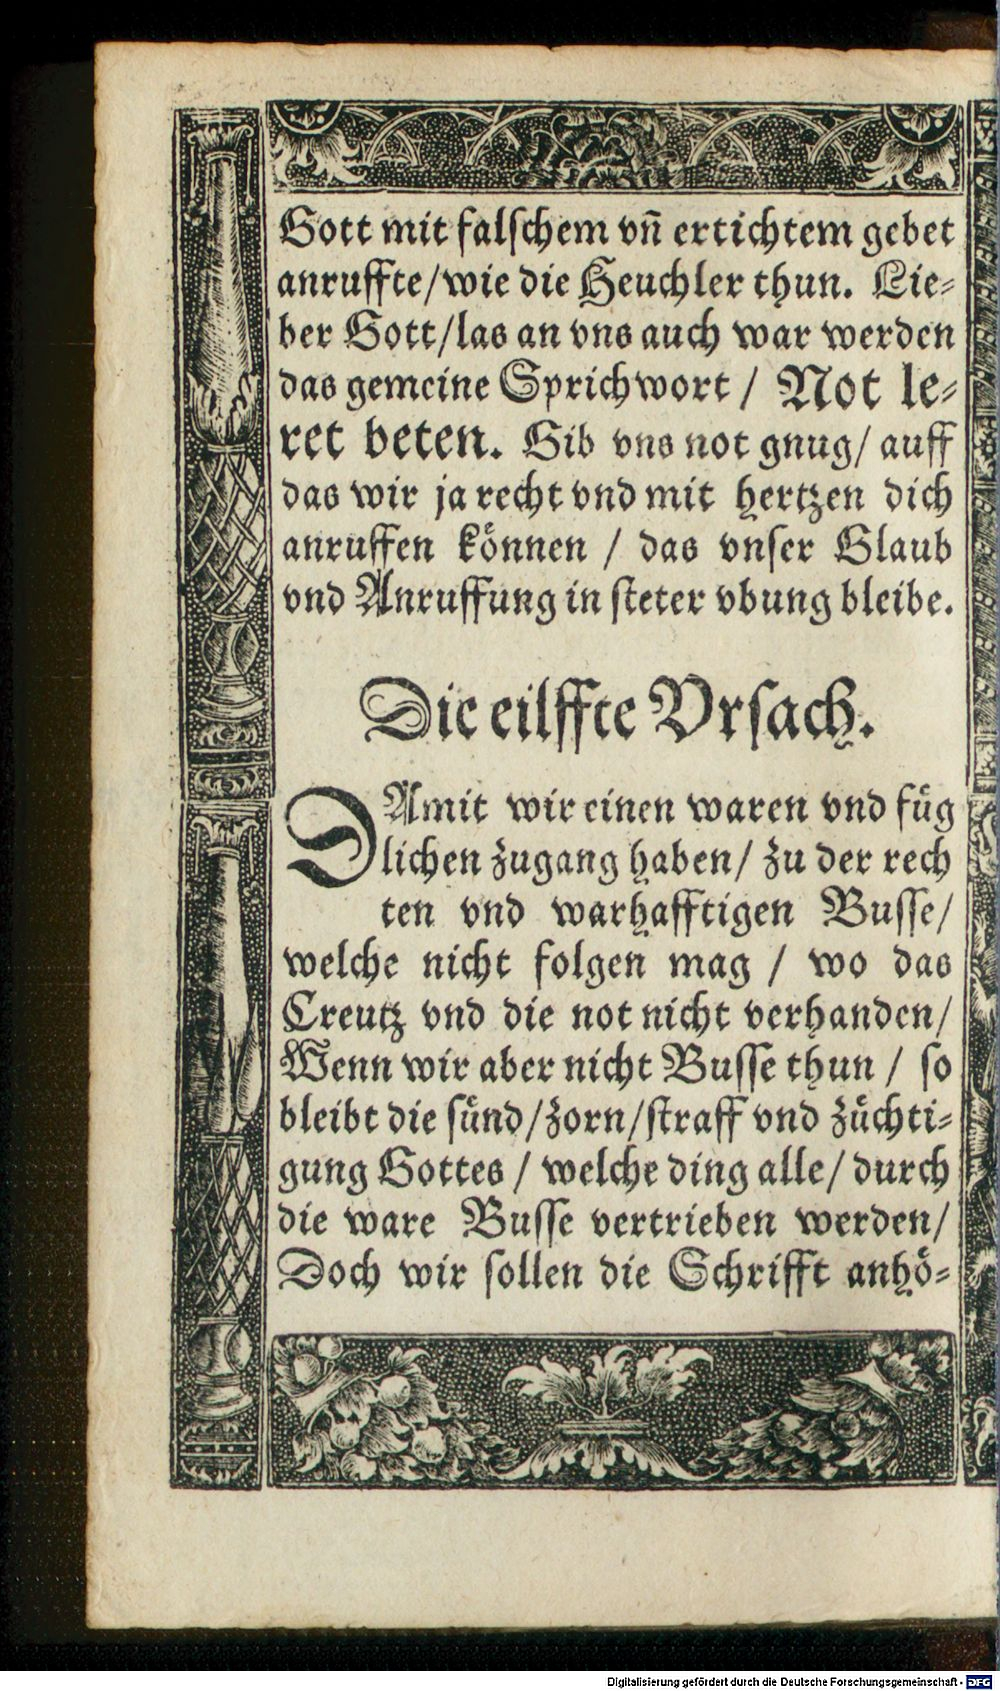 Gott mit falschem vñ ertichtem gebet
anruffte/wie die Heuchler thun. Lie-
ber Gott/las an vns auch war werden
das gemeine Sprichwort / Not le-
ret beten. Gib vns not gnug/ auff
das wir ja recht vnd mit hertzen dich
anruffen können / das vnser Glaub
vnd Anruffung in steter vbung bleibe.
Die eilffte Vrsach.
DAmit wir einen waren vnd füg
lichen zugang haben/ zu der rech
ten vnd warhafftigen Busse/
welche nicht folgen mag / wo das
Creutz vnd die not nicht verhanden/
Wenn wir aber nicht Busse thun / so
bleibt die sünd/zorn/straff vnd züchti-
gung Gottes / welche ding alle/ durch
die ware Busse vertrieben werden/
Doch wir sollen die Schrifft anhö-
Digitalisierung gefördert durch die Deutsche Forschungsgemeinschaft - DFG